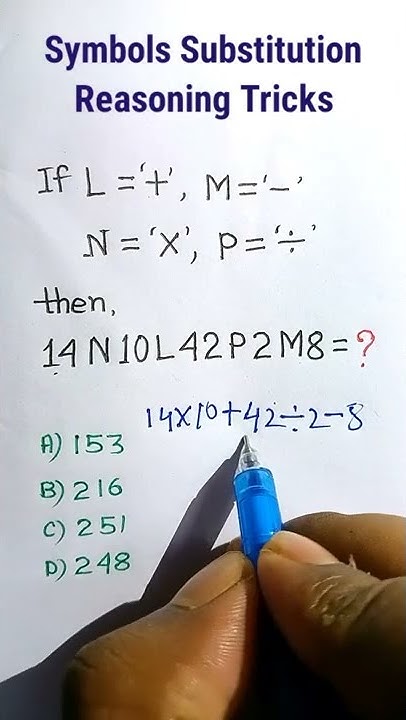 Symbols Substitution
Reasoning Tricks
If L = '+', M = '–'
N = 'X', P = '÷'
then,
14 N 10 L 42 P 2 M 8 = ?
14X10+42÷2-8
A) 153
B) 216
C) 251
D) 248